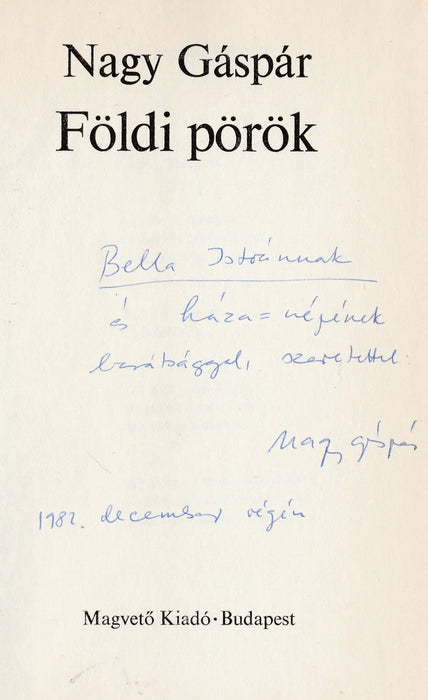 Nagy Gáspár
Földi pörök
Bella Istvánnak
és háza=népének
barátsággal, szeretettel:
Nagy Gáspár
1982. december végén
Magvető Kiadó · Budapest